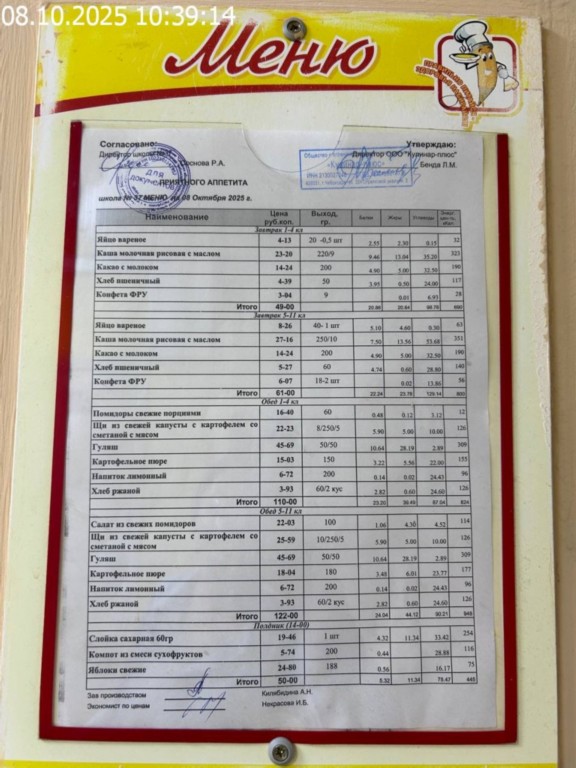 08.10.2025 10:39:14
Меню
Согласовано: Утверждаю:
Директор школы Директор ООО "Кулинар-плюс"
Соснова Р.А. Бенда Л.М.
для документов
ПРИЯТНОГО АППЕТИТА
школа № 37 МЕНЮ на 08 Октября 2025 г.
Наименование Цена руб.коп. Выход, гр. Белки Жиры Углеводы
Завтрак 1-4 кл
Яйцо вареное 4-13 20 -0,5 шт 2.55 2.30 0.15 32
Каша молочная рисовая с маслом 23-20 220/9 9.46 13.04 35.20 323
Какао с молоком 14-24 200 4.90 5.00 32.50 190
Хлеб пшеничный 4-39 50 3.95 0.50 24.00 117
Конфета ФРУ 3-04 9 0.01 6.93 28
Итого 49-00
Завтрак 5-11 кл
Яйцо вареное 8-26 40- 1 шт 5.10 4.60 0.30 63
Каша молочная рисовая с маслом 27-16 250/10 7.50 13.56 53.68 351
Какао с молоком 14-24 200 4.90 5.00 32.50 190
Хлеб пшеничный 5-27 60 4.74 0.60 28.80 140
Конфета ФРУ 6-07 18-2 шт 0.02 13.86 56
Итого 61-00 22.24 23.78 129.14 800
Обед 1-4 кл
Помидоры свежие порциями 16-40 60 0.48 0.12 3.12 12
Щи из свежей капусты с картофелем со сметаной с мясом 22-23 8/250/5 5.90 5.00 10.00 126
Гуляш 45-69 50/50 10.64 28.19 2.89 309
Картофельное пюре 15-03 150 3.22 5.56 22.00 155
Напиток лимонный 6-72 200 0.14 0.02 24.43 96
Хлеб ржаной 3-93 60/2 кус 2.82 0.60 24.60 126
Итого 110-00 23.20 39.49 87.04 824
Обед 5-11 кл
Салат из свежих помидоров 22-03 100 1.06 4.30 4.52 114
Щи из свежей капусты с картофелем со сметаной с мясом 25-59 10/250/5 5.90 5.00 10.00 126
Гуляш 45-69 50/50 10.64 28.19 2.89 309
Картофельное пюре 18-04 180 3.48 6.01 23.77 177
Напиток лимонный 6-72 200 0.14 0.02 24.43 96
Хлеб ржаной 3-93 60/2 кус 2.82 0.60 24.60 126
Итого 122-00 24.04 44.12 90.21 949
Полдник (14-00)
Слойка сахарная 60гр 19-46 1 шт 4.32 11.34 33.42 254
Компот из смеси сухофруктов 5-74 200 0.44 28.88 116
Яблоки свежие 24-80 188 0.56 16.17 75
Итого 50-00 5.32 11.34 78.47 445
Зав производством Килибядина А.Н.
Экономист по ценам Некрасова И.Б.